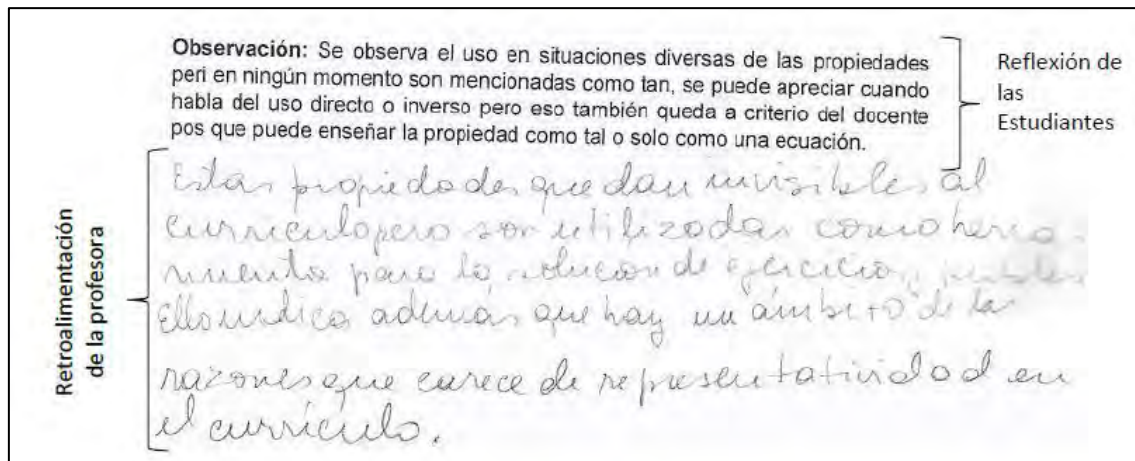 Observación: Se observa el uso en situaciones diversas de las propiedades
peri en ningún momento son mencionadas como tan, se puede apreciar cuando
habla del uso directo o inverso pero eso también queda a criterio del docente
pos que puede enseñar la propiedad como tal o solo como una ecuación.
Reflexión de
las
Estudiantes
Retroalimentación
de la profesora
Estas propiedades quedan invisibles al
currículo pero son utilizadas como herra-
mienta para la solución de ejercicios
Ello indica además que hay un "ámbito" de la
razones que carece de representatividad en
el currículo.